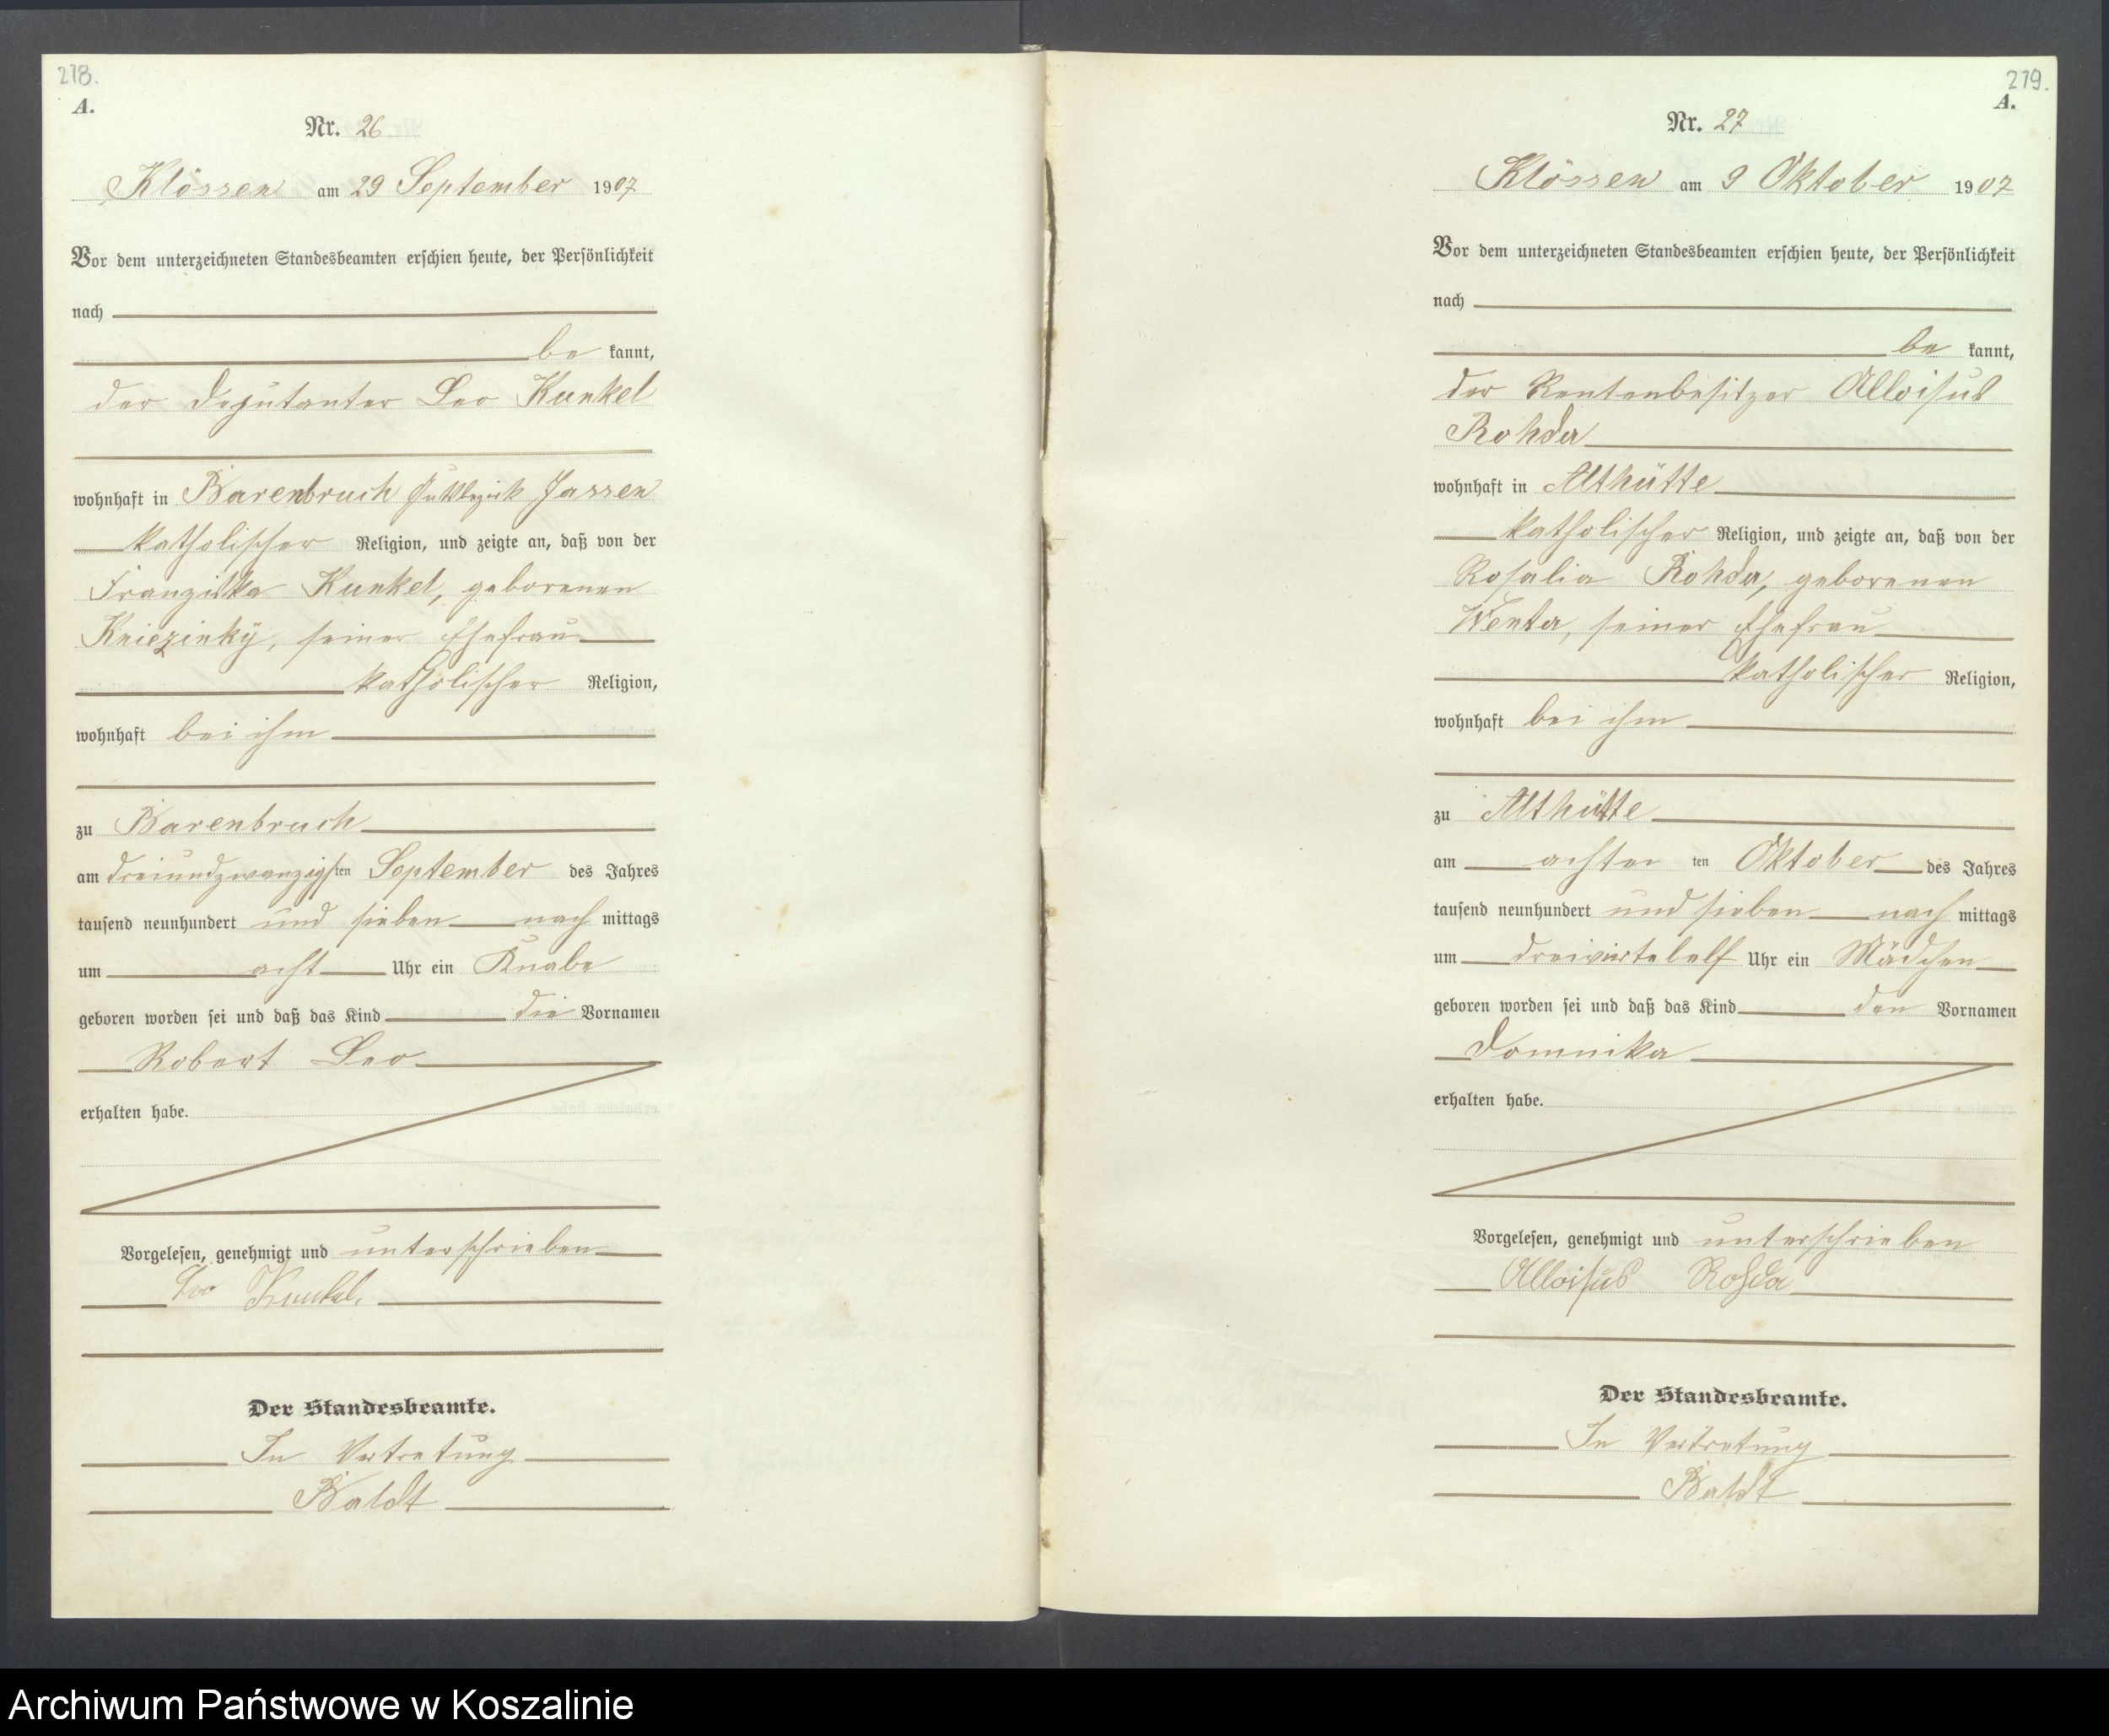 278.
A.
Nr. 26
Klössen am 29 September 1907
Vor dem unterzeichneten Standesbeamten erschien heute, der Persönlichkeit
nach
be kannt,
der Deputanter Leo Kunkel
wohnhaft in Barenbruch Gutsbezirk Jassen
katholischer Religion, und zeigte an, daß von der
Franziska Kunkel, geborenen
Kniezinky, seiner Ehefrau
katholischer Religion,
wohnhaft bei ihm
zu Barenbruch
am dreiundzwanzigsten September des Jahres
tausend neunhundert und sieben nach mittags
um acht Uhr ein Knabe
geboren worden sei und daß das Kind die Vornamen
Robert Leo
erhalten habe.
Vorgelesen, genehmigt und unterschrieben
Leo Kunkel.
Der Standesbeamte.
In Vertretung
Baldt
279.
A.
Nr. 27
Klössen am 9 Oktober 1907
Vor dem unterzeichneten Standesbeamten erschien heute, der Persönlichkeit
nach
be kannt,
der Rentenbesitzer Alloisus
Rohda
wohnhaft in Althütte
katholischer Religion, und zeigte an, daß von der
Rosalia Rohda, geborenen
Wenta, seiner Ehefrau
katholischer Religion,
wohnhaft bei ihm
zu Althütte
am achten ten Oktober des Jahres
tausend neunhundert und sieben nach mittags
um dreiviertelelf Uhr ein Mädchen
geboren worden sei und daß das Kind den Vornamen
Domnika
erhalten habe.
Vorgelesen, genehmigt und unterschrieben
Alloisus Rohda
Der Standesbeamte.
In Vertretung
Baldt
Archiwum Państwowe w Koszalinie